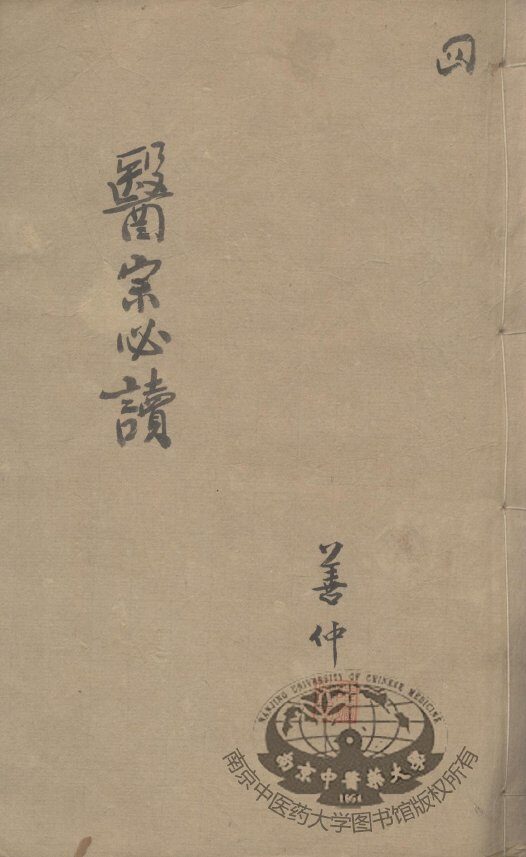 四
醫宗必讀
善仲
NANJING UNIVERSITY OF CHINESE MEDICINE
南京中醫藥大學
1954
南京中医药大学图书馆版权所有